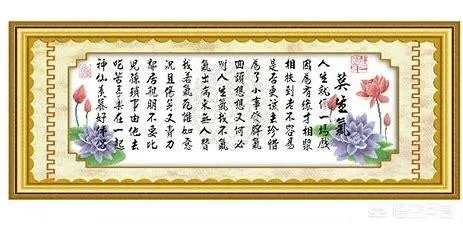 莫生氣
人生就像一場戲
因為有緣才相聚
相扶到老不容易
是否更該去珍惜
為了小事發脾氣
回頭想想又何必
別人生氣我不氣
氣出病來無人替
我若氣死誰如意
況且傷神又費力
鄰居親朋不要比
兒孫瑣事由他去
吃苦享樂在一起
神仙羨慕好伴侶
悟空问答